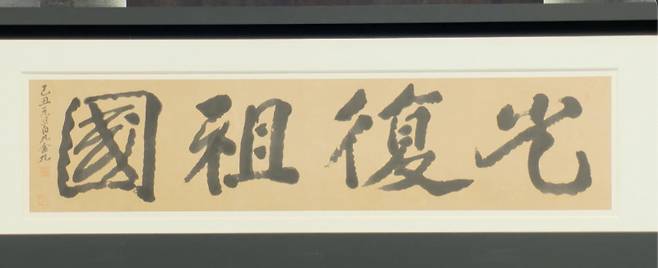 光復祖國
己丑 白凡金九